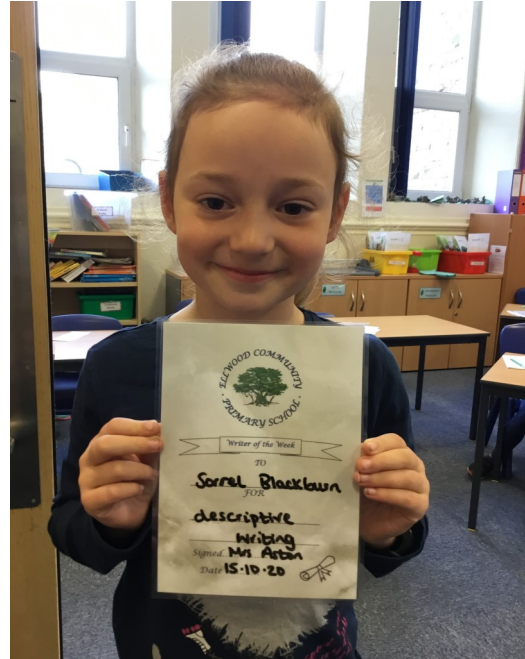 ELLWOOD COMMUNITY
· PRIMARY SCHOOL ·
Writer of the Week
TO
Sorrel Blackburn
FOR
descriptive
writing
Signed Mrs Aston
Date 15·10·20